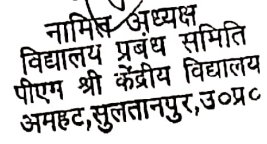 नामित अध्यक्ष
विद्यालय प्रबंध समिति
पीएम श्री केंद्रीय विद्यालय
अमहट,सुलतानपुर,उ०प्र०